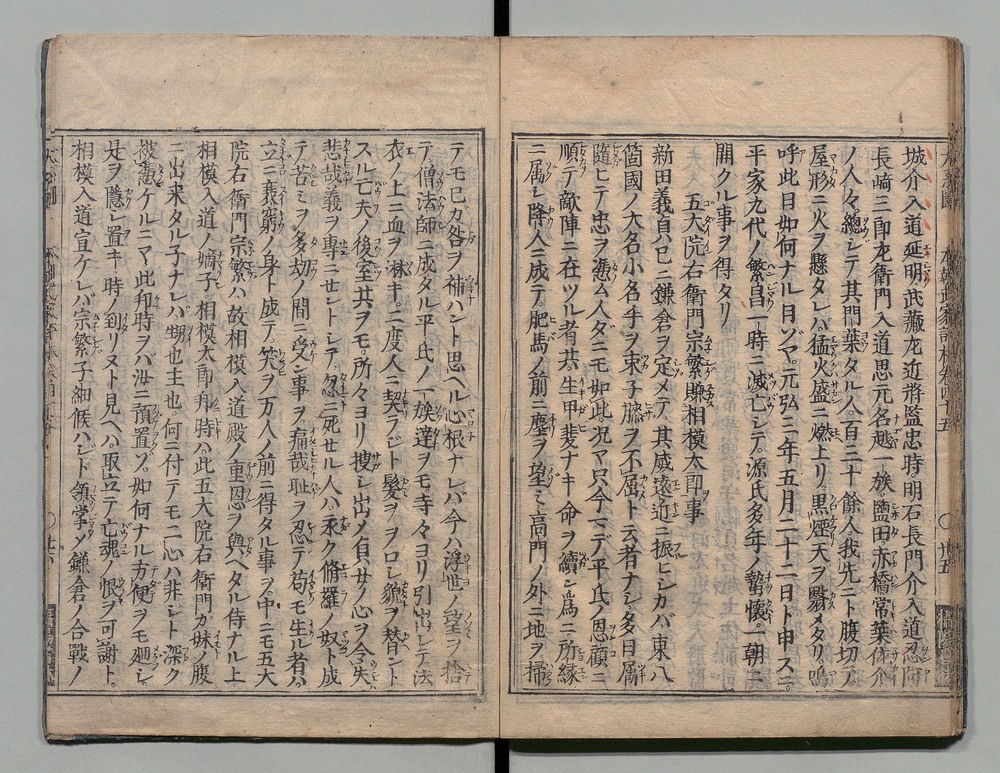 城介入道延明。武藏左近將監忠時。明石長門介入道忍阿
長崎三郎左衛門入道思元。名越一族。鹽田。赤橋。常葉。佐介
ノ人々。總シテ其門葉タル人二百三十餘人。我先ニト腹切テ。
屋形ニ火ヲ懸タレバ猛火盛ニ燃上リ。黒煙天ヲ翳メタリ。嗚
呼此日如何ナル日ソマ。元弘三年五月二十二日ト申スニ。
平家九代ノ繁昌一時ニ滅亡シテ。源氏多年ノ蟄懷。一朝ニ
開クル事ヲ得タリ
五大院右衛門宗繁賺相模太郎事
新田義貞ハ已ニ鎌倉ヲ定メテ。其威遠近ニ振ヒシカバ。東八
箇國ノ大名小名手ヲ束子膝ヲ不屈ト云者ナシ。多日属
隨ヒテ忠ヲ憑ム人ダニモ如此。况マ只今マデ平氏ノ恩顧ニ
順テ。敵陣ニ在ツル者共。生甲斐ナキ命ヲ續ン為ニ。所縁
ニ属シ降人ニ成テ。肥馬ノ前ニ塵ヲ望ミ。高門ノ外ニ地ヲ掃
テモ己カ咎ヲ補ハント思ヘル心根ナレバ。今ハ浮世ノ望ヲ捨
テ。僧法師ニ成タル平氏ノ一族達ヲモ。寺々ヨリ引出シテ。法
衣ノ上ニ血ヲ淋キ。二度人ニ契ラジト。髮ヲヲロシ。貌ヲ替ント
スル亡夫ノ後室共ヲモ。所々ヨリ搜シ出メ。貞女ノ心ヲ令失。
悲哉。義ヲ專ニセントシテ。忽ニ死セル人ハ。永ク脩羅ノ奴ト成
テ。苦ミヲ多劫ノ間ニ受ン事ヲ。痛哉。耻ヲ忍デ苟モ生ル者ハ。
立ニ衰窮ノ身ト成テ。笑ヲ万人ノ前ニ得タル事ヲ。中ニモ五大
院右衛門宗繁ハ。故相模入道殿ノ重恩ヲ與ヘタル侍ナル上。
相模入道ノ嫡子。相模太郎邦時ハ。此五大院右衛門ガ妹ノ腹
ニ出来タル子ナレバ。甥也主也。何ニ付テモ二心ハ非シト深ク
被憑ケルニマ。此邦時ヲバ汝ニ預置ゾ。如何ナル方便ヲモ廻シ。
是ヲ隱シ置キ。時ノ到リヌト見ヘバ。取立テ亡魂ノ恨ヲ可謝ト。
相模入道宣ケレバ。宗繁子細候ハジト領掌メ。鎌倉ノ合戰ノ